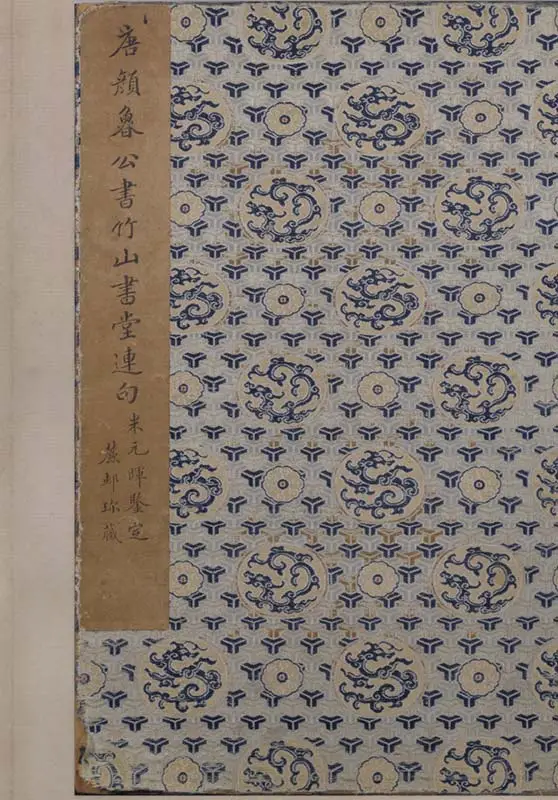 唐顔魯公書竹山書堂連句
米元暉鑒定
蕉邨珎藏